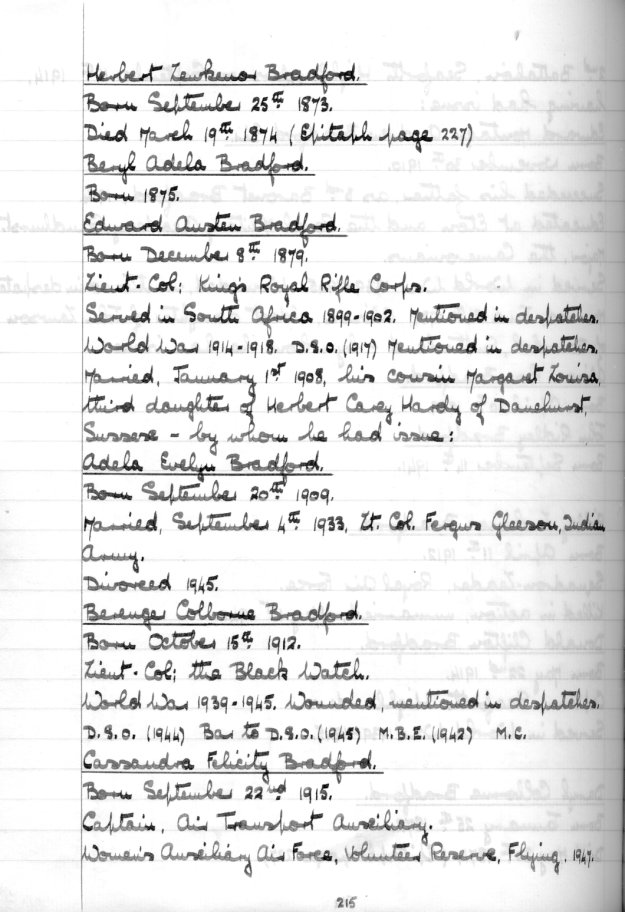 Herbert Lewkenor Bradford.
Born September 25th 1873.
Died March 19th 1874 (Epitaph page 227)
Beryl Adela Bradford.
Born 1875.
Edward Austen Bradford.
Born December 8th 1879.
Lieut-Col; King's Royal Rifle Corps.
Served in South Africa 1899-1902. Mentioned in despatches.
World War 1914-1918. D.S.O. (1917) Mentioned in despatches.
Married, January 1st 1908, his cousin Margaret Louisa,
third daughter of Herbert Carey Hardy of Danehurst,
Sussex - by whom he had issue:
Adela Evelyn Bradford.
Born September 20th 1909.
Married, September 4th 1933, Lt. Col. Fergus Gleeson, Indian
Army.
Divorced 1945.
Berenger Colborne Bradford.
Born October 15th 1912.
Lieut-Col; the Black Watch.
World War 1939-1945. Wounded, mentioned in despatches.
D.S.O. (1944) Bar to D.S.O. (1945) M.B.E. (1942) M.C.
Cassandra Felicity Bradford.
Born September 22nd 1915.
Captain, Air Transport Auxiliary.
Women's Auxiliary Air Force, Volunteer Reserve, Flying, 1947.
215